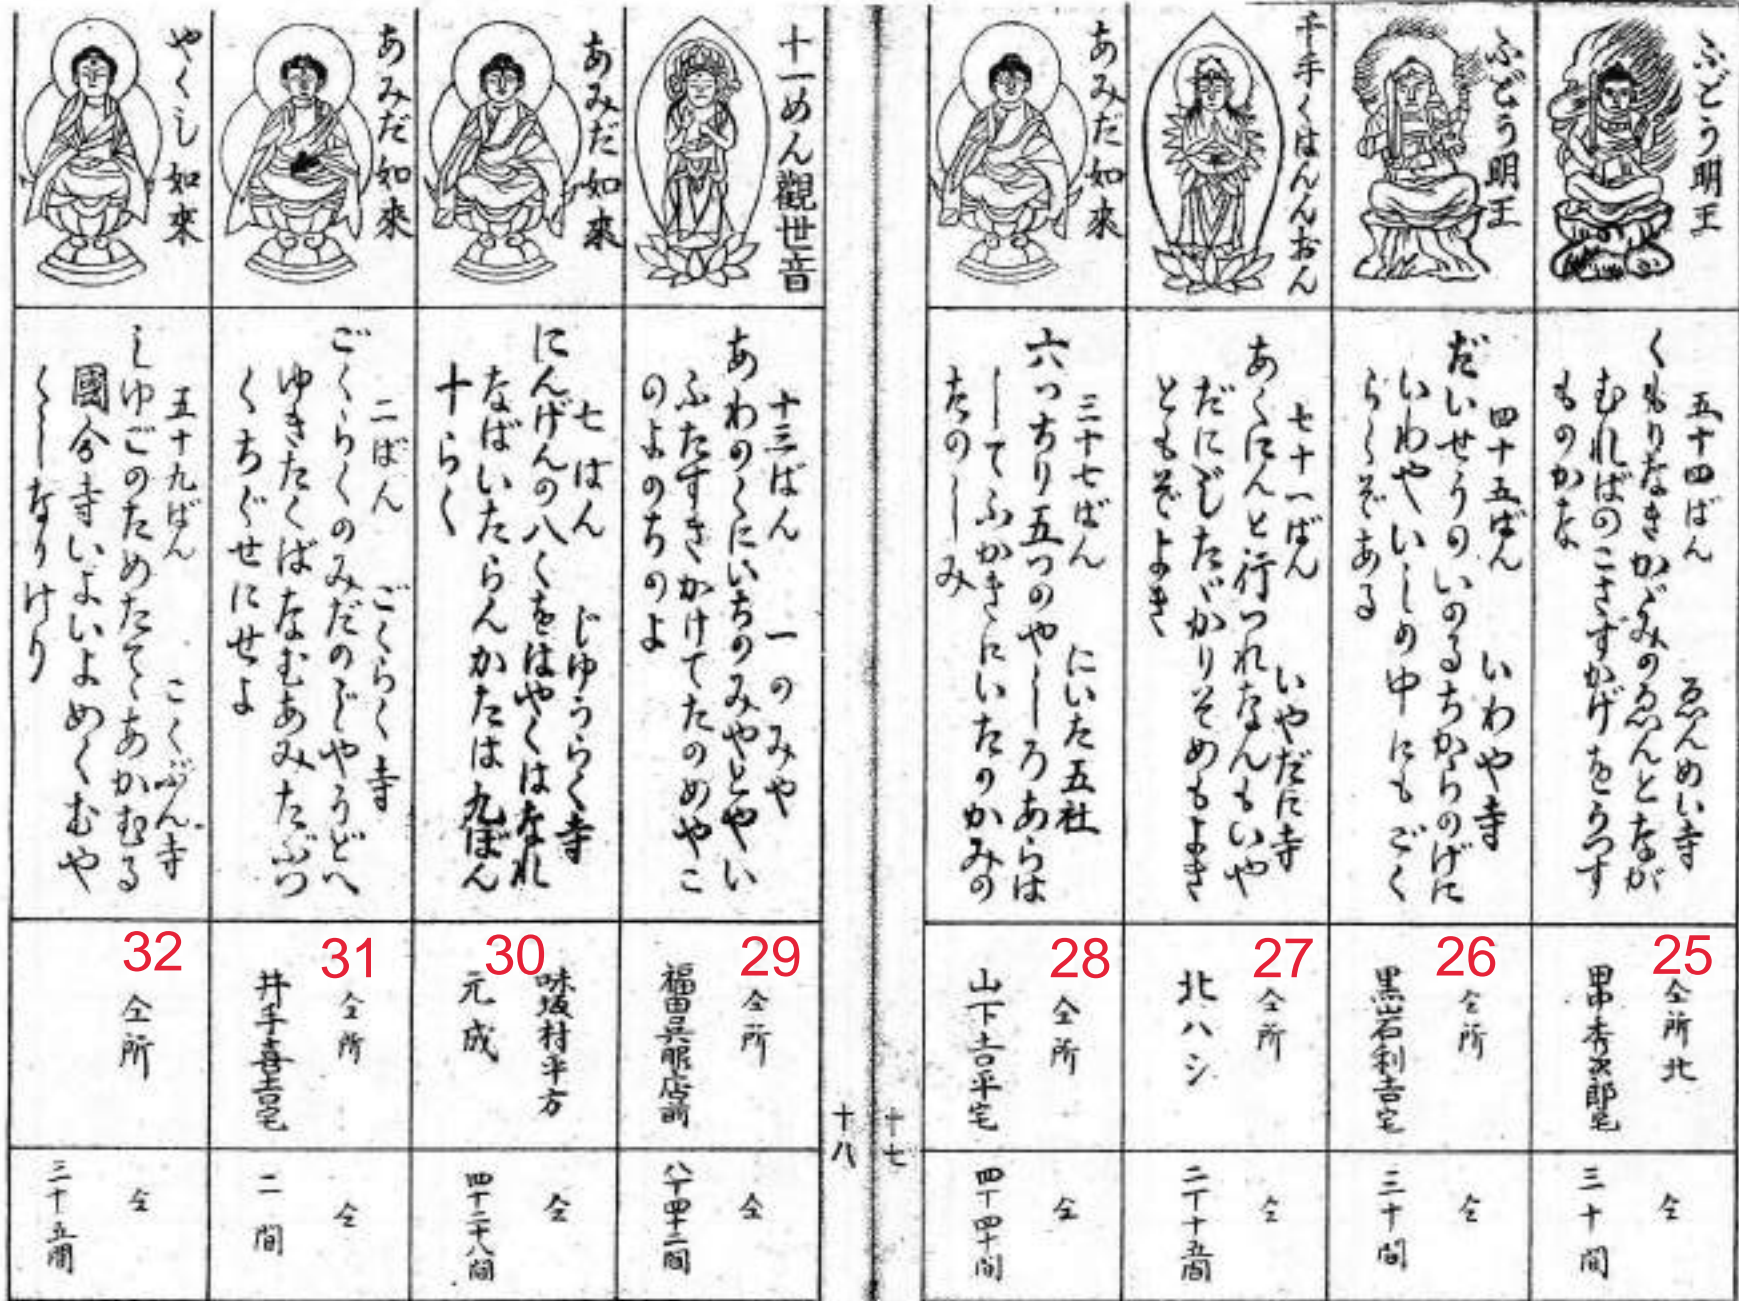 ふどう明王
五十四ばん ゑんめい寺
くもりなきかゞみのゑんとなが
むればのこさずかげをうつす
ものかな
25
仝所北
田中秀次郎宅
仝
三十間
ふどう明王
四十五ばん いわや寺
だいせうのいのるちからのげに
いわやいしの中にもごく
らくぞある
26
仝所
黒岩利吉宅
仝
三十間
千手くはんおん
七十一ばん いやだに寺
あくにんと行つれなんもいや
だにじたゞかりそめもよき
ともぞよき
27
仝所
北ハシ
仝
二丁十五間
あみだ如来
三十七ばん にいた五社
六つちり五つのやしろあらは
してふかきにいたのかみの
たのしみ
28
仝所
山下吉平宅
仝
四丁四十間
十七
十八
十一めん觀世音
十三ばん 一のみや
あわのくにいちのみやとやい
ふたすきかけてたのめやこ
のよのちのよ
29
仝所
福田呉服店前
仝
八丁四十二間
あみだ如来
七はん じゆうらく寺
にんげんの八くをはやくはなれ
なばいたらんかたは九ぼん
十らく
30
味坂村平方
元成
仝
四十二丁八間
あみだ如來
二ばん ごくらく寺
ごくらくのみだのじやうどへ
ゆきたくばなむあみたぶつ
くちぐせにせよ
31
仝所
井手喜吉宅
仝
二間
やくし如来
五十九ばん こくぶん寺
しゆごのためたてゝあがむる
國分寺いよいよめくむや
くしなりけり
32
仝所
仝
三十五間